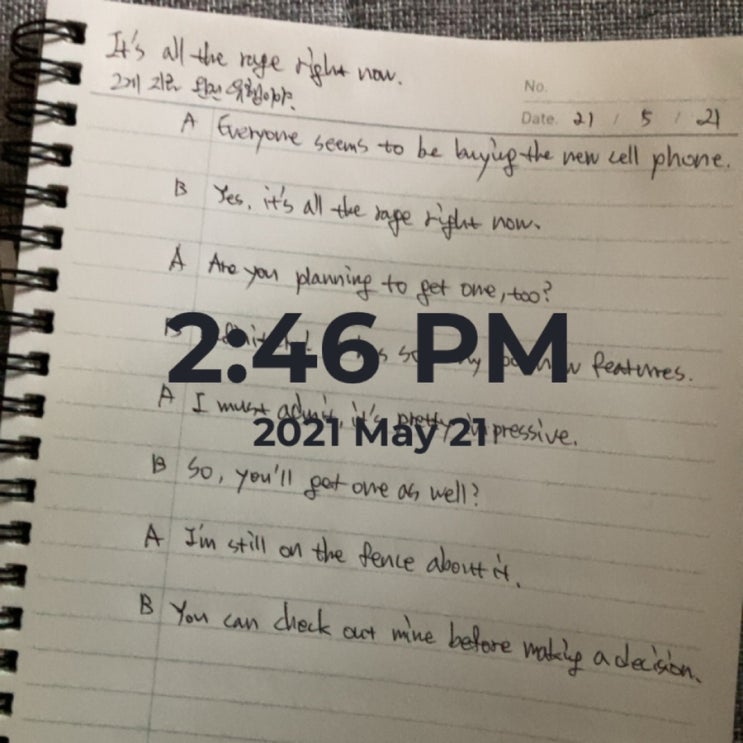 It's all the rage right now.
그게 지금 완전 유행이야.
No.
Date. 21 / 5 / 21
A Everyone seems to be buying the new cell phone.
B Yes, it's all the rage right now.
A Are you planning to get one, too?
B features.
2:46 PM
A I must admit, it's pretty impressive.
2021 May 21
B So, you'll get one as well?
A I'm still on the fence about it.
B You can check out mine before making a decision.